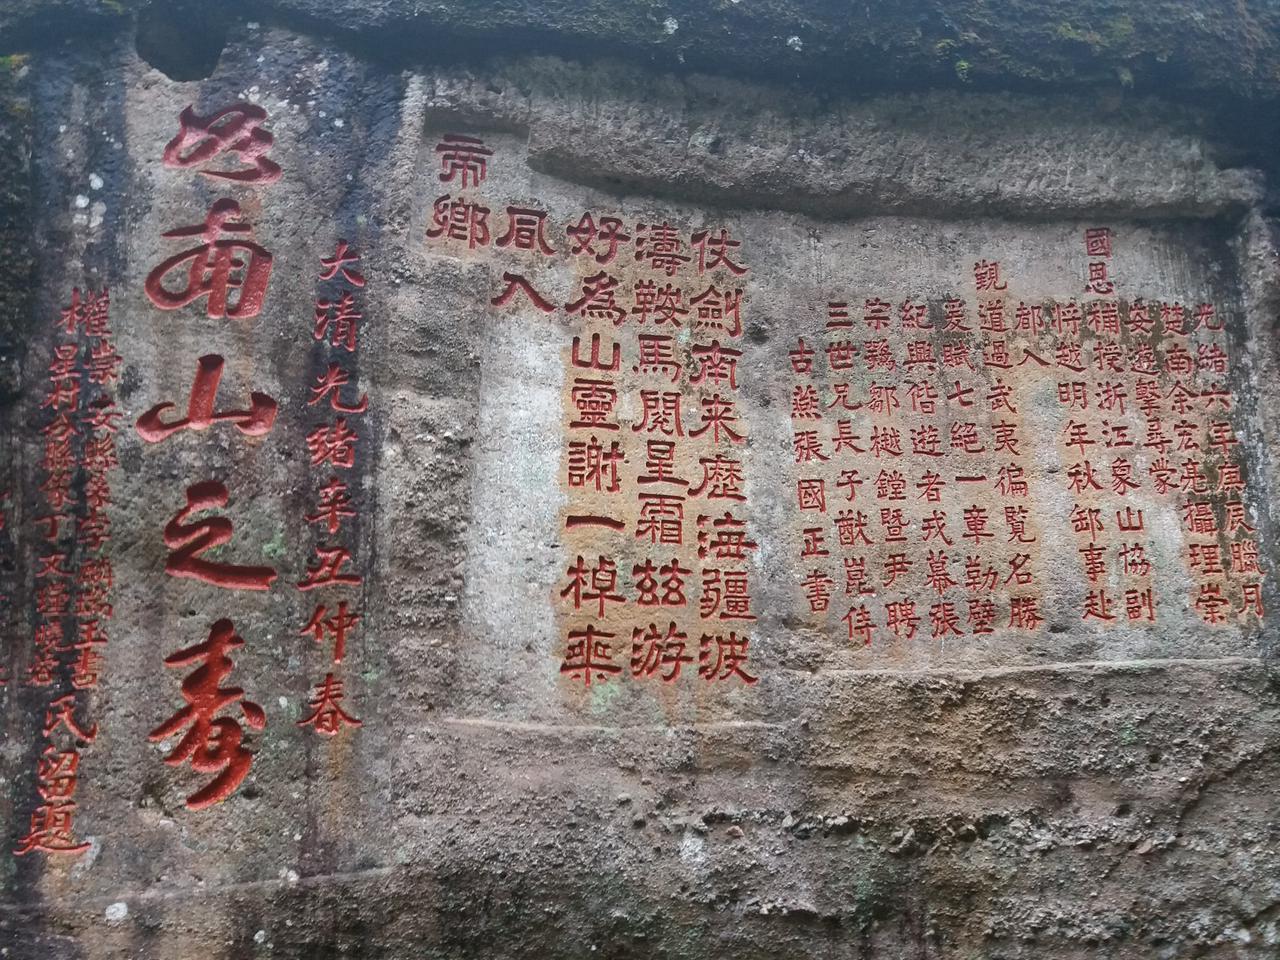 光緒六年庚辰臘月
楚南余宏亮攝理崇
安遊擊尋蒙
國恩補授浙江象山協副
將越明年秋卸事赴
都入
觀道過武夷徧覽名勝
爰賦七絕一章勒壁
紀興偕遊者戎幕張
宗鄒樾鏜暨尹聘
三世兄長子猷崑侍
古燕張國正書
仗劍南来歷海疆波
濤鞍馬閱星霜茲游
好為山靈謝一棹乘
風入
帝鄉
大清光緒辛丑仲春
如南山之壽
權崇安縣篆
星村分縣篆丁又
氏留題